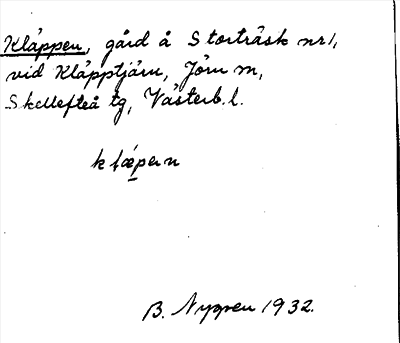 Kläppen, gård å Storträsk nr 1,
vid Kläpptjärn, Jörn sn,
Skellefteå tg, Västerb. l.
klæpen
B. Nygren 1932.